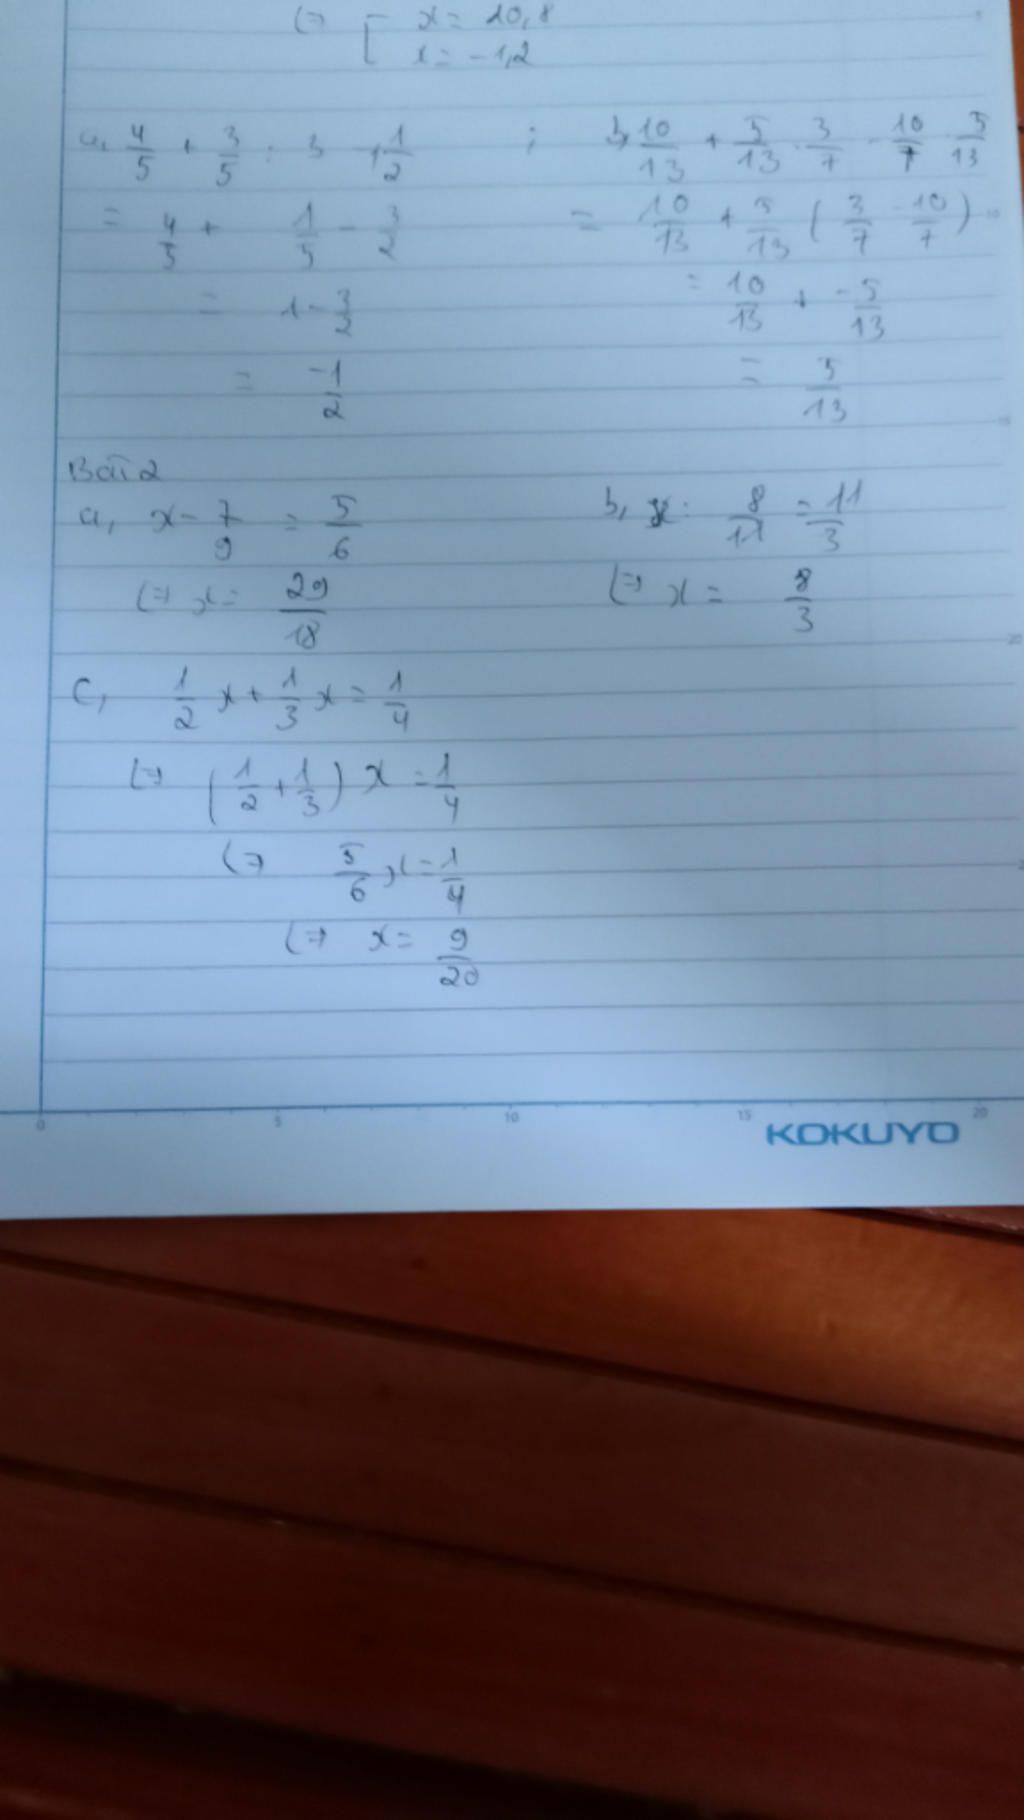 (=> [ x = 10,8
x = -1,2
a, 4/5 + 3/5 : 3 - 1 1/2 ; b, 10/13 + 5/13 . 3/7 - 10/7 . 5/13
= 4/5 + 1/5 - 3/2 = 10/13 + 5/13 ( 3/7 - 10/7 )
= 1 - 3/2 = 10/13 + -5/13
= -1/2 = 5/13
Bài 2
a, x - 7/9 = 5/6 b, x : 8/11 = 11/3
(=> x = 29/18 (=> x = 8/3
c, 1/2 x + 1/3 x = 1/4
(=> ( 1/2 + 1/3 ) x = 1/4
(=> 5/6 x = 1/4
(=> x = 9/20
0 5 10 15 20
KOKUYO